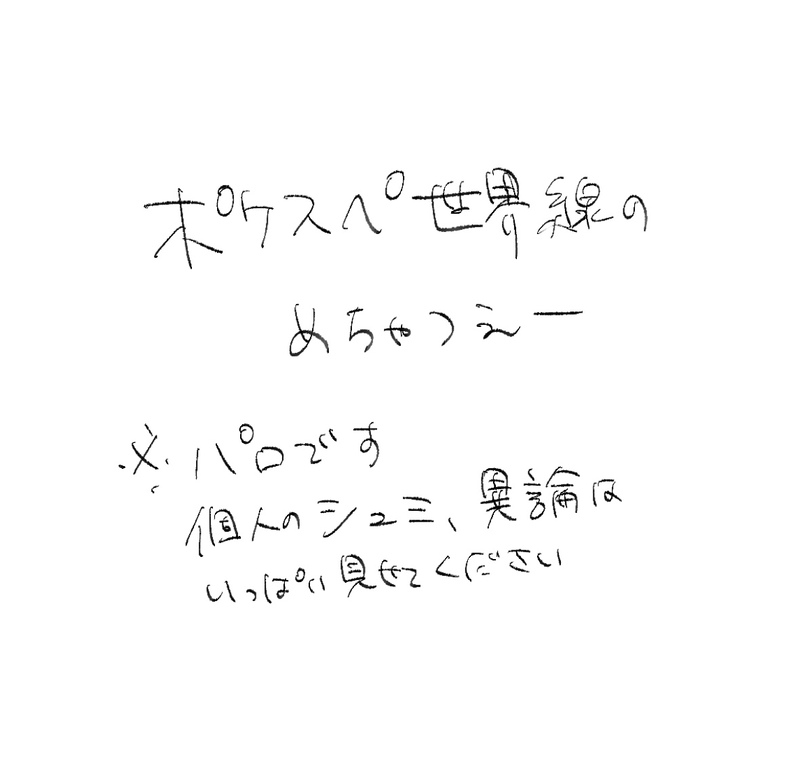 ポケスペ世界線の
めちゃつえー
※パロです
個人のシュミ、異論は
いっぱい見せてください